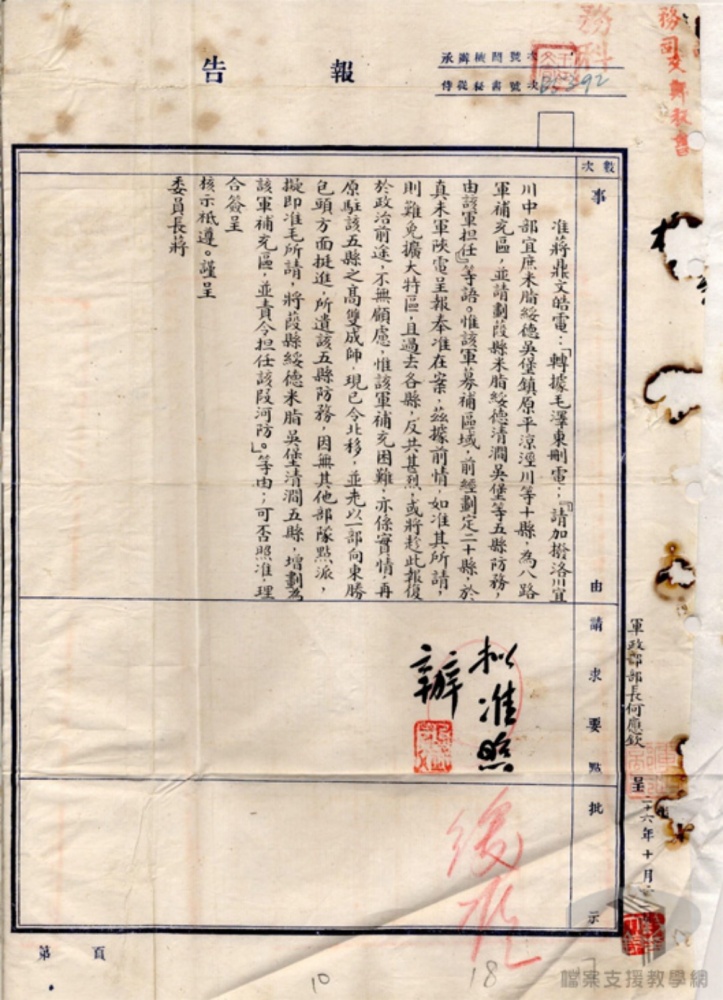 務科
務司文卸敬會
承辦機關號次
侍從秘書號次
報告
軍政部部長何應欽
呈
二十六年十月
數次
事由
請求要點
批示
准蔣鼎文皓電：「轉據毛澤東刪電：『請加撥洛川宜
川中部宜庶米脂綏德吳堡鎮原平涼涇川等十縣，為八路
軍補充區，並請劃葭縣米脂綏德清澗吳堡等五縣防務，
由該軍担任』等語。惟該軍募補區域，前經劃定二十縣，於
真未軍陝電呈報奉准在案，茲據前情，如准其所請，
則難免擴大特區，且過去各縣，反共甚烈，或將趁此報復
於政治前途，不無顧慮，惟該軍補充困難，亦係實情，再
原駐該五縣之高雙成師，現已令北移，並先以一部向東勝
包頭方面挺進，所遺該五縣防務，因無其他部隊點派，
擬即准毛所請，將葭縣綏德米脂吳堡清澗五縣，增劃為
該軍補充區，並責令担任該段河防。」等由；可否照准，理
合簽呈
核示祗遵。謹呈
委員長蔣
擬准照
辦
緩辦
第 頁
10
18
檔案支援教學網